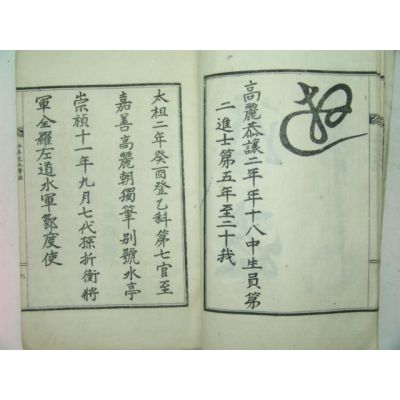 高麗恭讓二年年十八中生員第
二進士第五年至二十我
太祖二年癸酉登乙科第七官至
嘉善高麗朝獨筆別號水亭
崇禎十一年九月七代孫折衝將
軍全羅左道水軍節度使